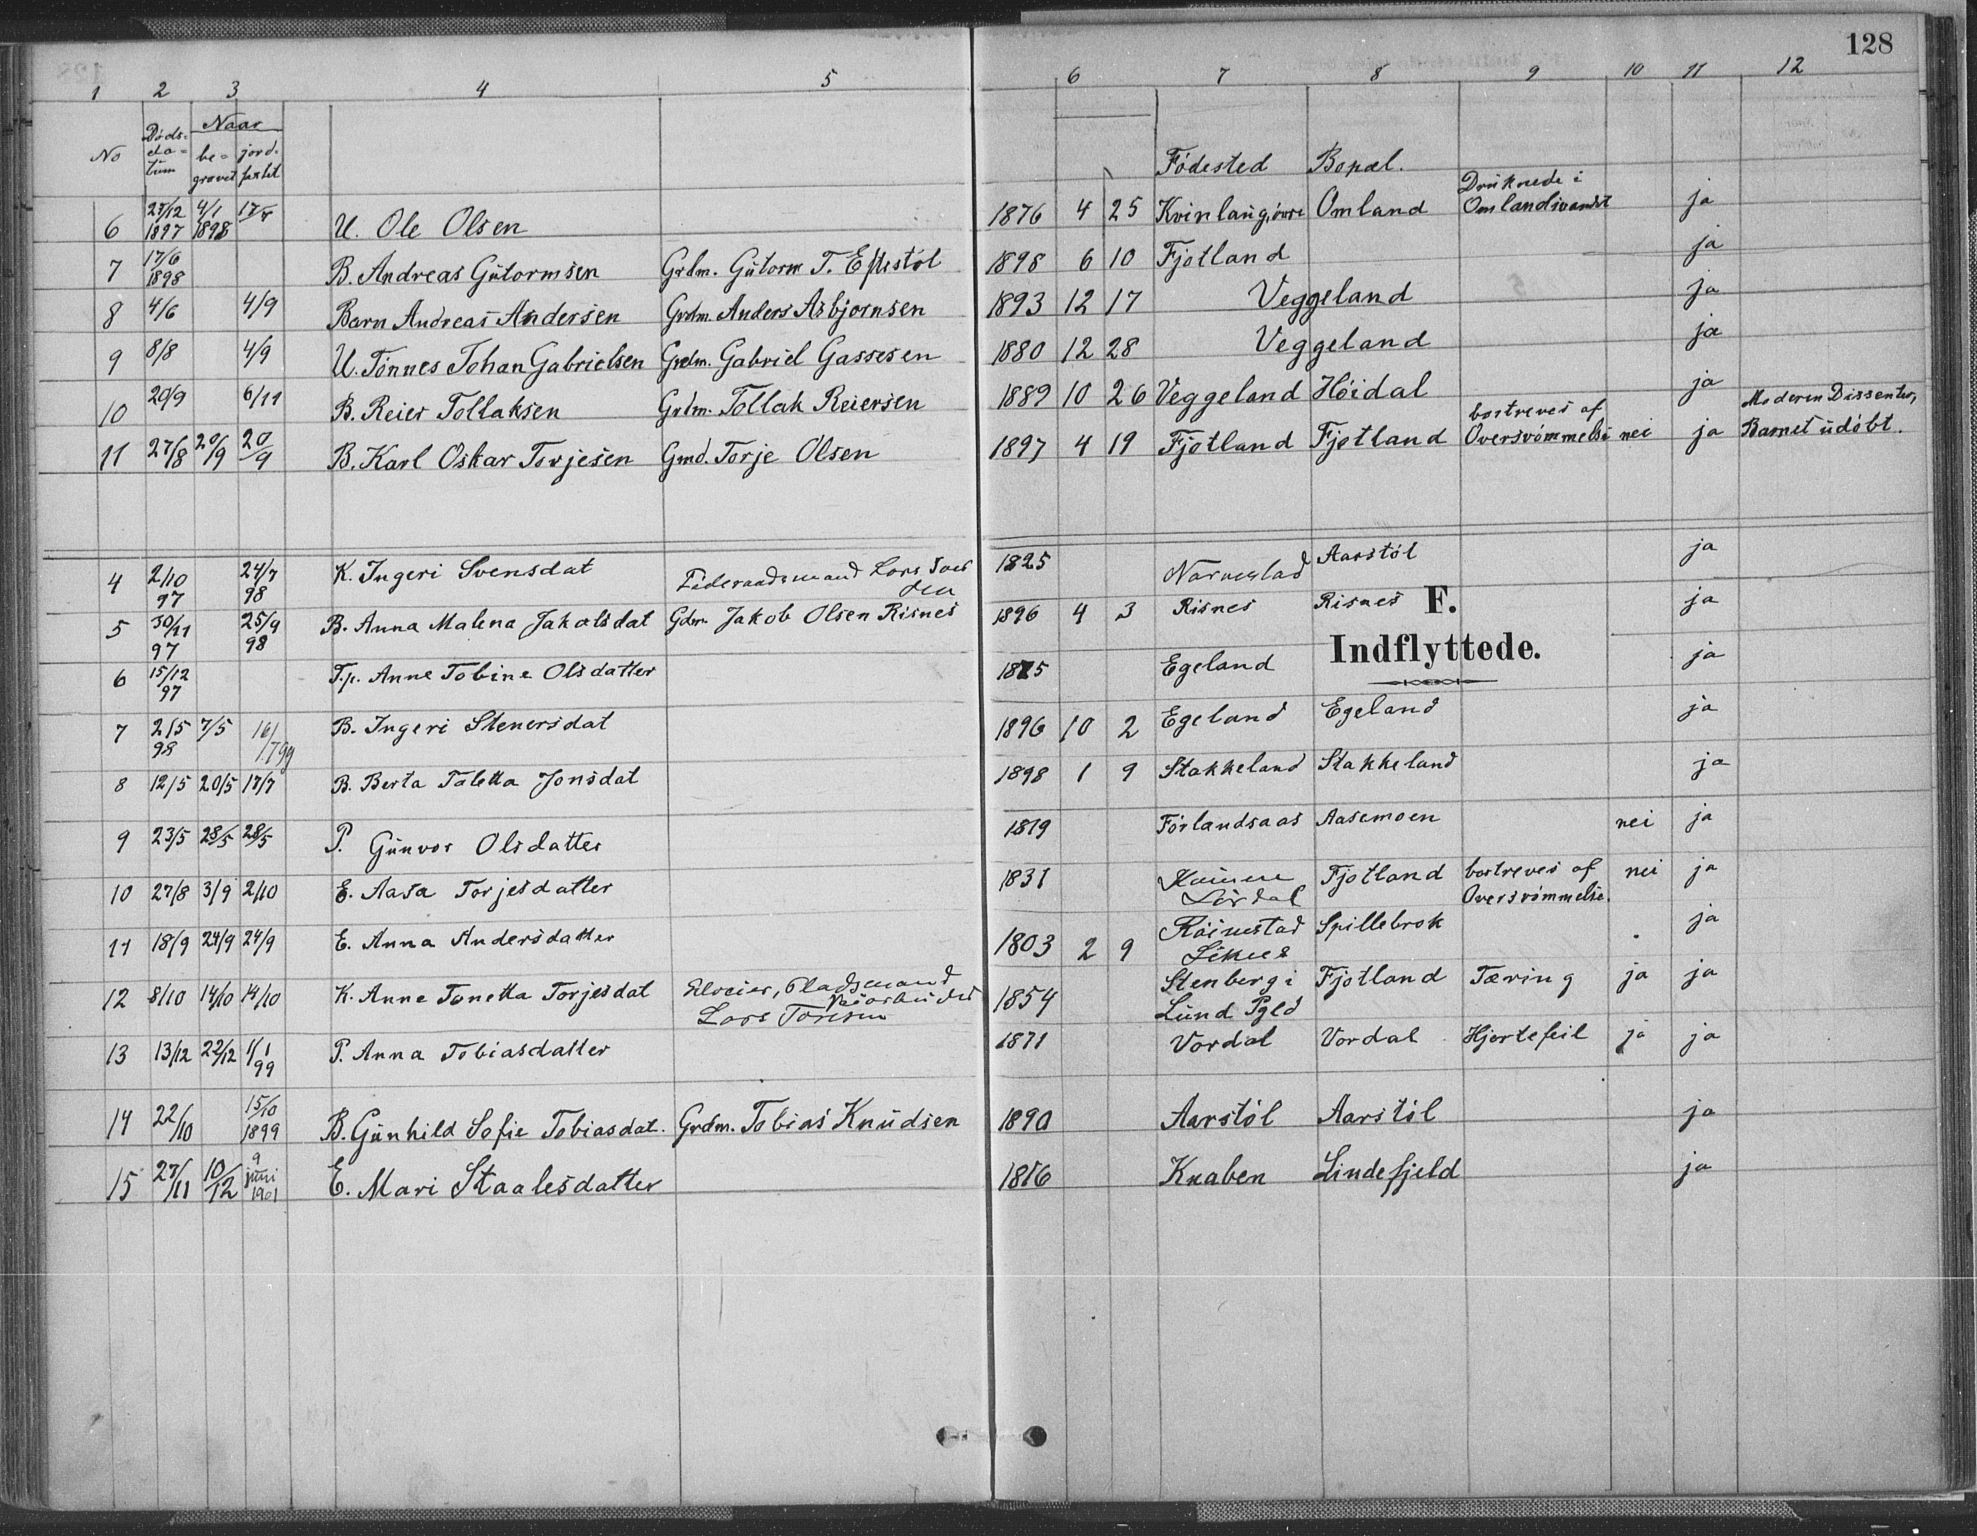 128
1 2 3 4 5 6 7 8 9 10 11 12
No Døds-datum Naar be-gravet jord-fæstet Fødested Bopæl.
6 27/12 1897 4/1 1898 U. Ole Olsen 1876 4 25 Omland Druknede i Omlandsvandet ja
7 17/6 1898 B. Andreas Gutormsen Grdm. Gutorm T. Eftestøl 1898 6 10 Fjotland ja
8 4/6 4/9 Barn Andreas Andersen Grdm. Anders Asbjornsen 1893 12 17 Veggeland ja
9 8/8 4/9 U. Tønnes Johan Gabrielsen Grdm. Gabriel Gassesen 1880 12 28 Veggeland ja
10 20/9 6/11 B. Reier Tollaksen Grdm. Tollak Reiersen 1889 10 26 Veggeland Høidal ja
11 27/8 20/9 20/9 B. Karl Oskar Torjesen Gmd. Torje Olsen 1897 4 19 Fjotland Fjotland bortreves af Oversvømmelse nei ja Moderen Dissenter, Barnet udøbt.
4 2/10 97 24/7 98 K. Ingeri Svensdat Føderaadsmand Lars 1825 Aarstøl ja
5 30/11 97 25/9 98 B. Anna Malena Jakobsdat Gdm. Jakob Olsen Risnes 1896 4 3 Risnes Risnes ja
F.
Indflyttede.
6 15/12 97 T.p. Anne Tobine Olsdatter Egeland ja
7 2/5 98 7/5 B. Ingeri Stenersdat 1896 10 2 Egeland Egeland ja
8 12/5 20/5 17/7 B. Berta Taletta Jonsdat 1898 1 9 Stakkeland Stakkeland ja
9 23/5 28/5 28/5 P. Gunvor Olsdatter 1879 Førlandsaas Aasemoen nei ja
10 27/8 3/9 2/10 E. Aasa Torjesdatter 1831 Fjotland bortreves af Oversvømmelse. nei ja
11 18/9 24/9 24/9 E. Anna Andersdatter 1803 2 9 Spillebrok ja
12 8/10 14/10 14/10 K. Anne Tonetta Torjesdat Pladsmand Lars 1854 Stenberg i Lund Pgld Fjotland Tæring ja ja
13 13/12 22/12 1/1 99 P. Anna Tobiasdatter 1871 Vordal Vordal Hjertefeil ja ja
14 22/10 15/10 1899 B. Gunhild Sofie Tobiasdat. Grdm. Tobias Knudsen 1890 Aarstøl Aarstøl ja
15 27/11 10/12 9 juni 1901 E. Mari Staalesdatter 1816 Knaben Lindefjeld ja